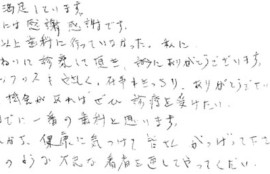 満足しています。
には感謝感謝です。
以上歯科に行っていなかった、私に
ねいに診察して頂き、誠にありがとうございます。
やさしく、仕事もきっちり、ありがとうござい
機会があればぜひ診療を受けたい。
でに一番の歯科と思います。
健康に気つけて皆さん がっばってたて
のような大元な若者を通してやってくだい。